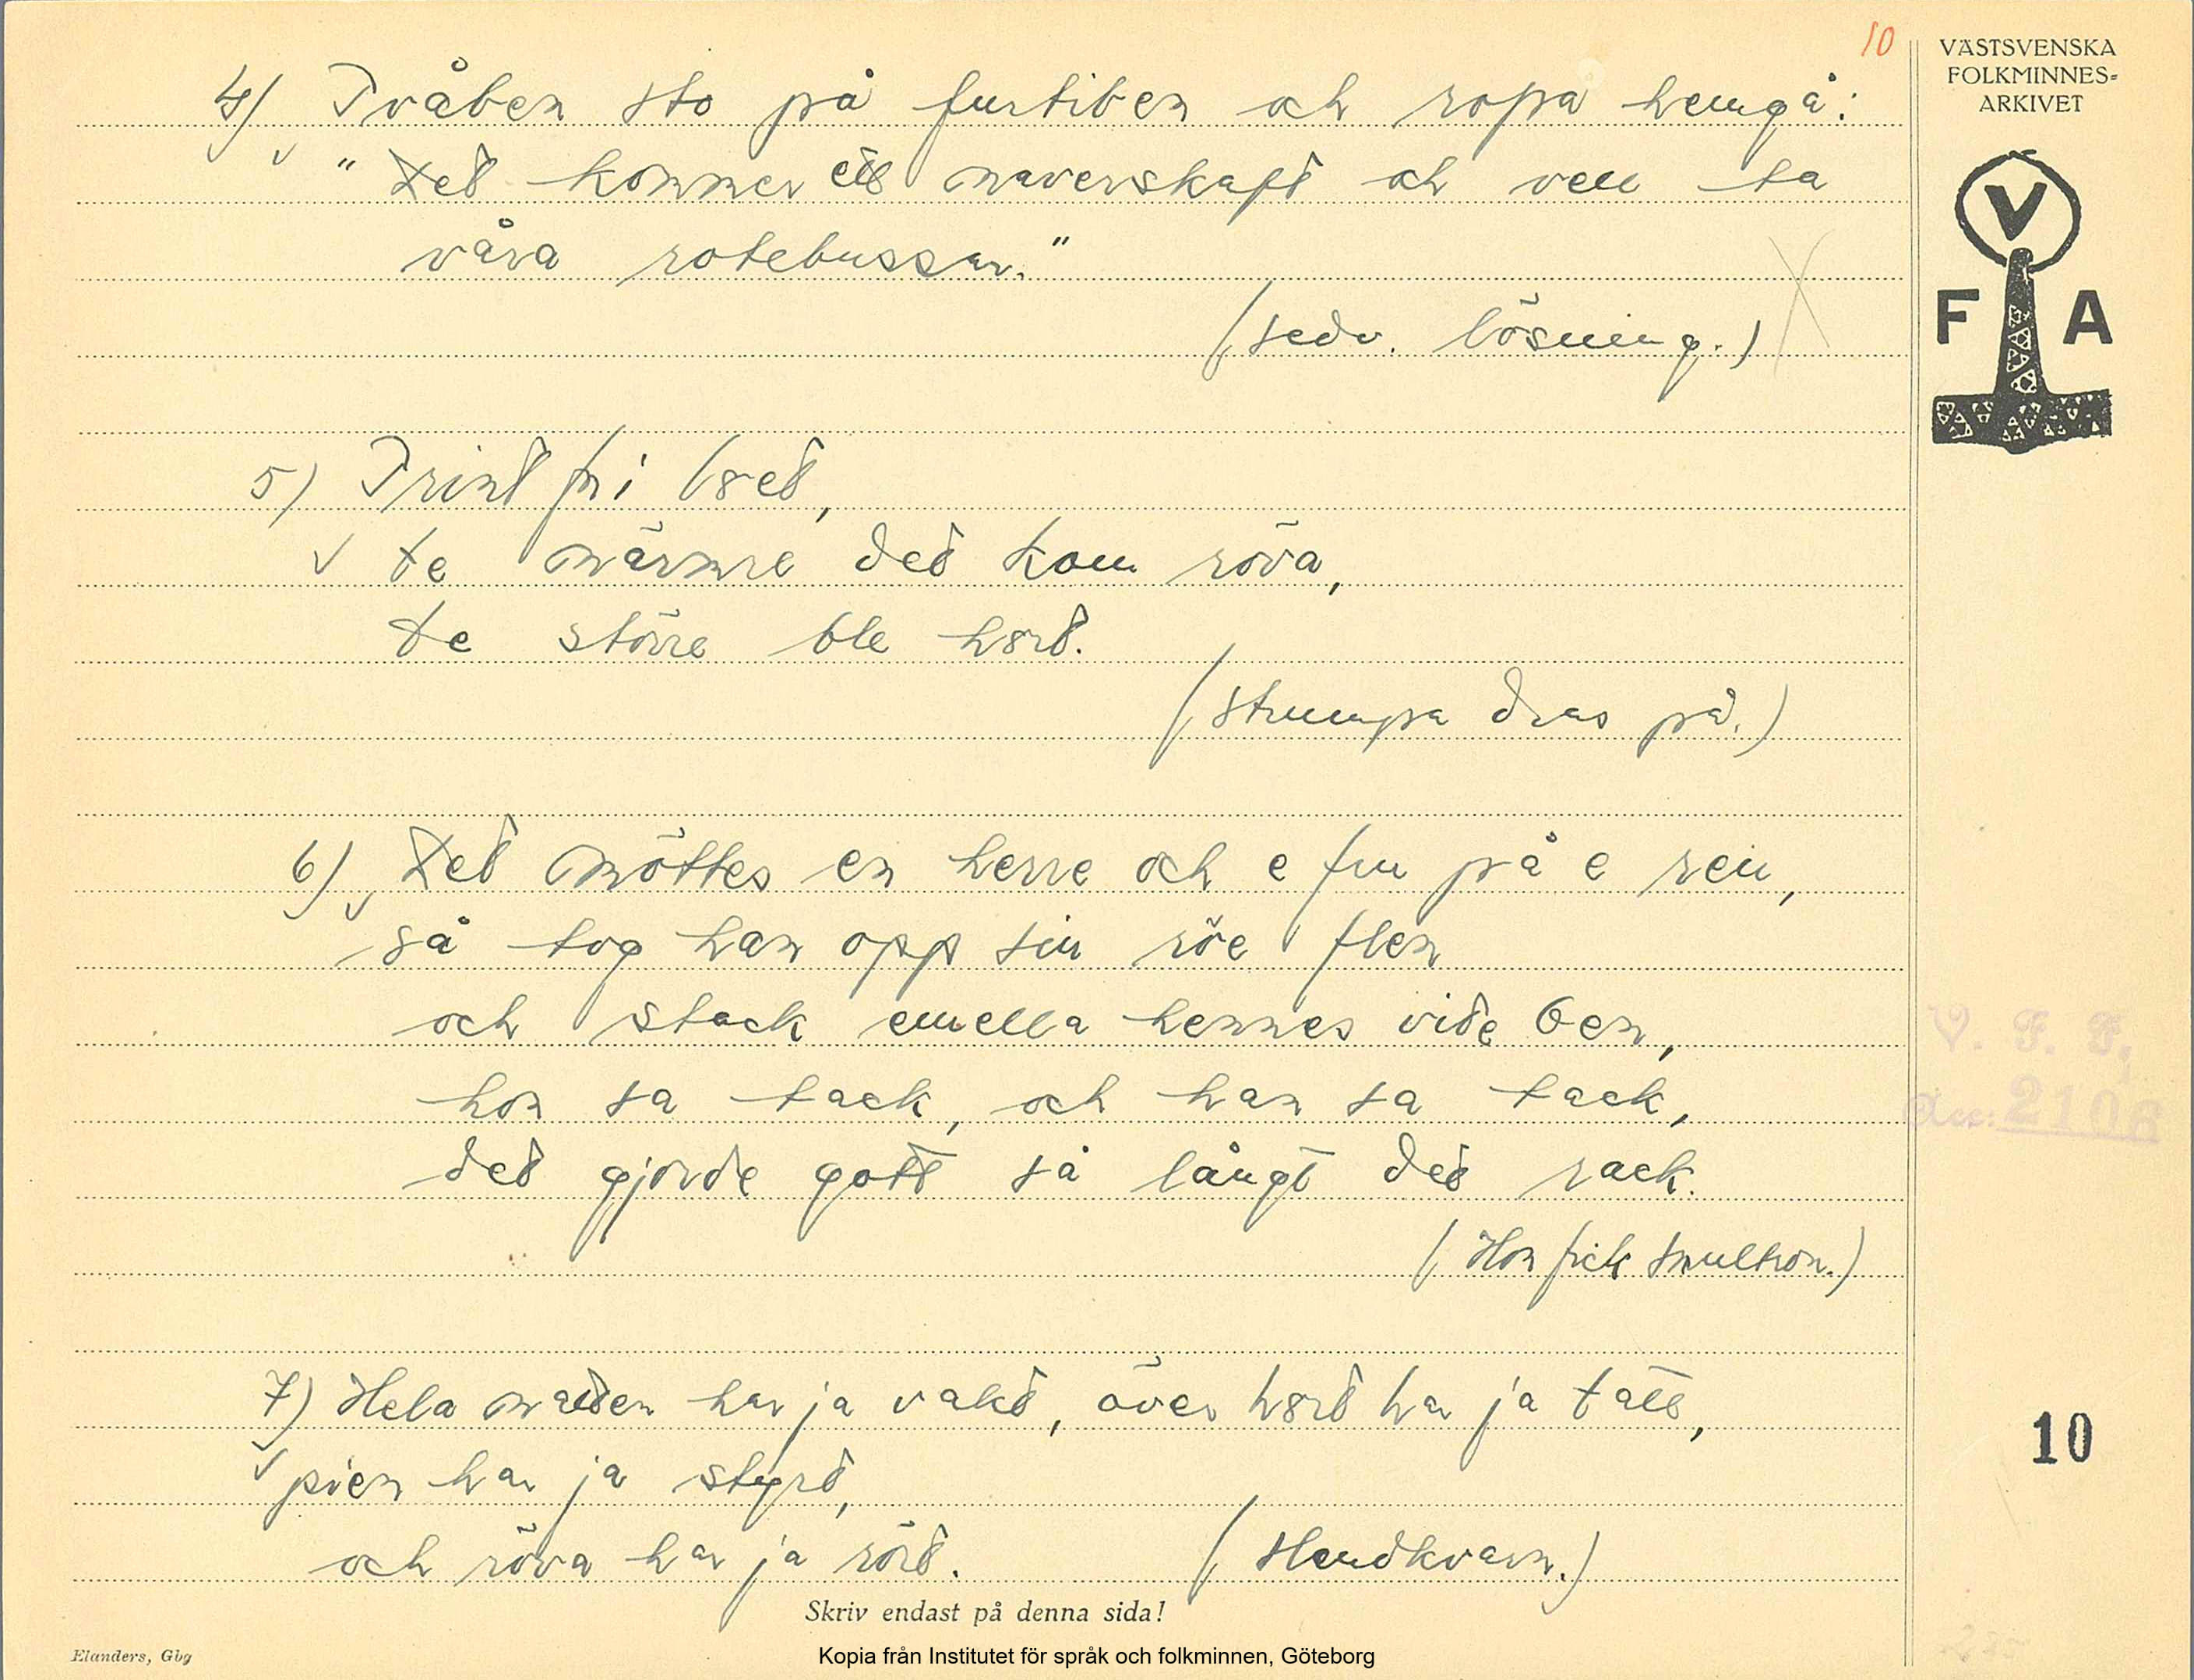 10
VÄSTSVENSKA
FOLKMINNES=
ARKIVET
V
F A
4) Tvåben sto på furtiben och ropa hemgå:
"Det kommer ett naverskaft och vell ta
våra rotebussar."
(sedv. lösning.)
5) Trint
te närmre det kom röva,
te större ble høret.
(Strumpa dras på.)
6) Det möttes en herre och e fru på e ren,
så tog han opp sin röe flen
och stack emella hennes vide ben,
hon sa tack, och han sa tack,
det gjorde gott så långt det rack.
(Hon fick smultron.)
7) Hela natten har ja vakt, över har ja tatt,
pien har ja styrt,
och röva har ja rört. (Handkvarn.)
V. F. F.
Acc: 2106
10
Skriv endast på denna sida!
Elanders, Gbg
Kopia från Institutet för språk och folkminnen, Göteborg